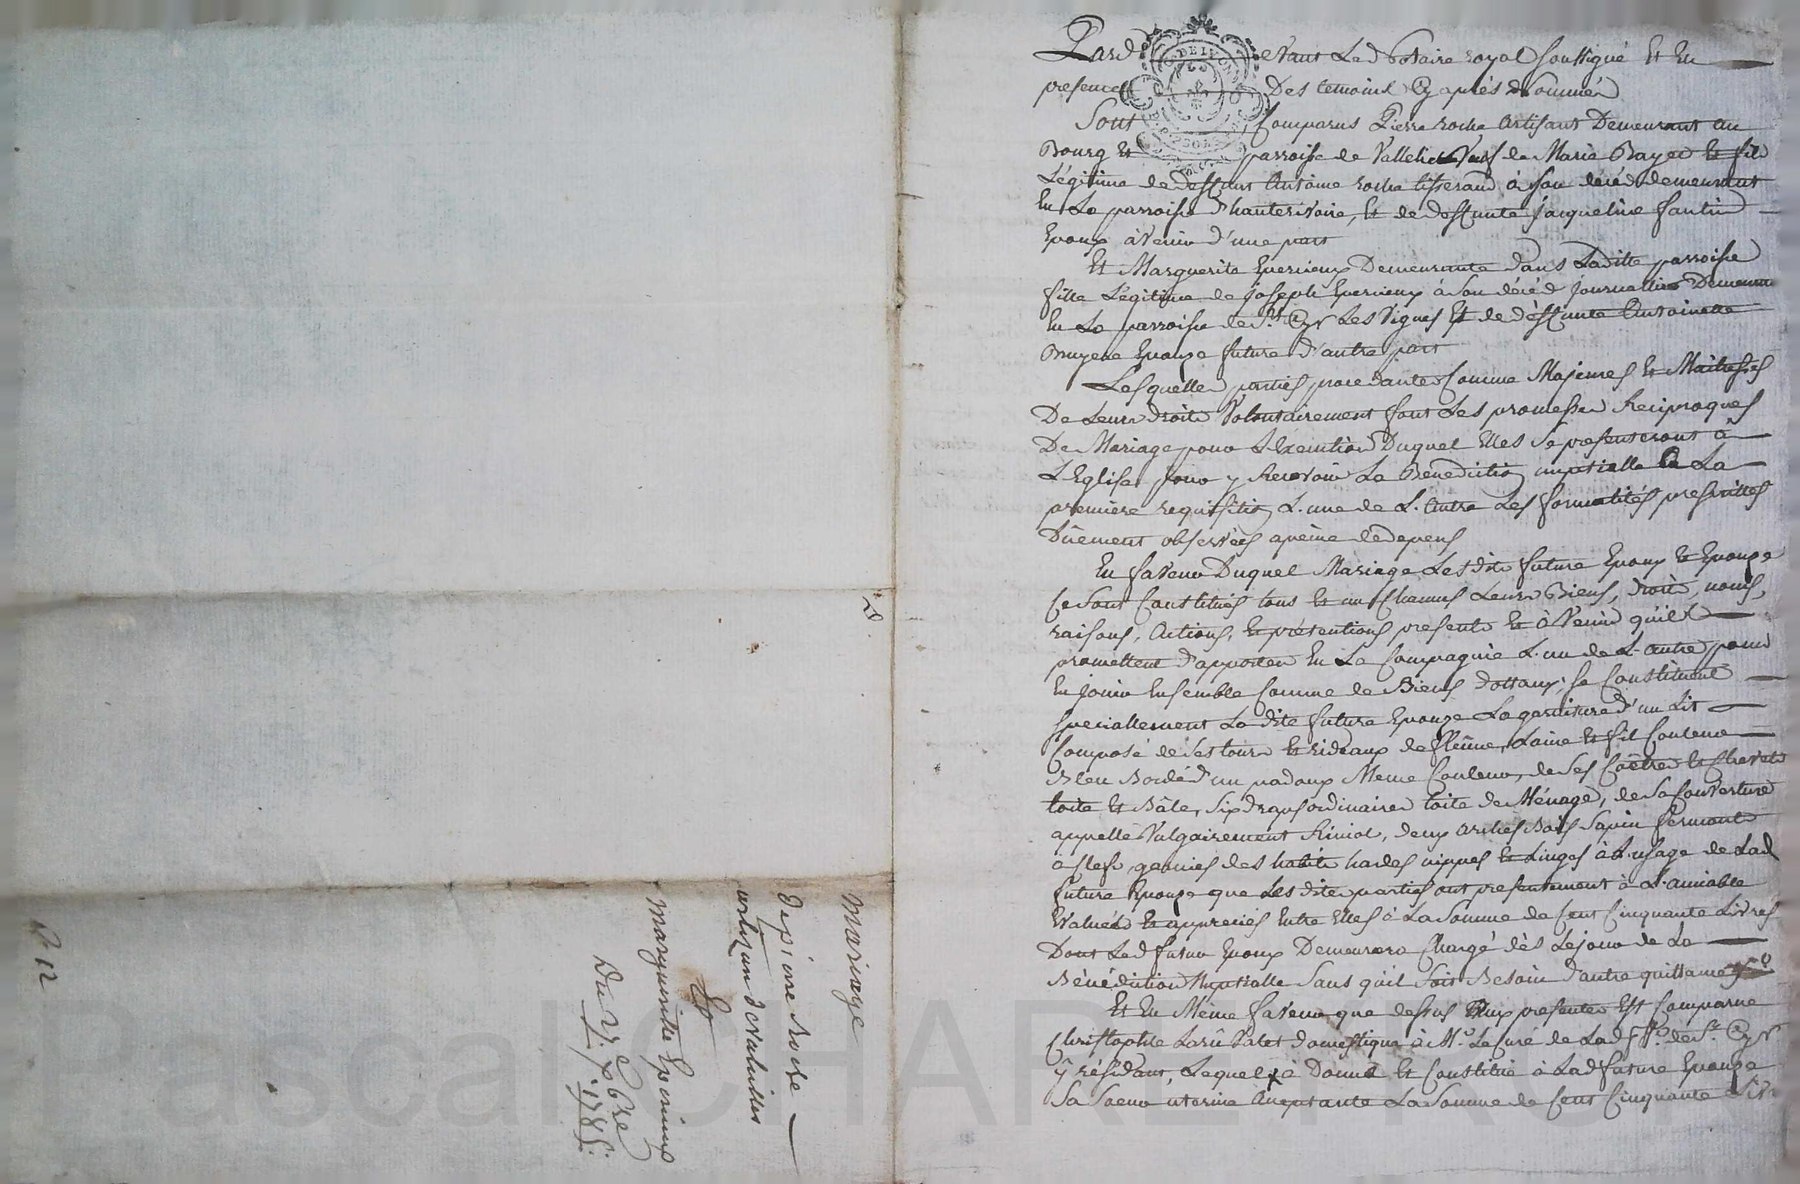 Pard evant Led Notaire royal soussigné Et En
presence Des temoins Cy après Nommés
Sont Comparus Pierre roche Artisant Demeurant au
Bourg Et parroisse de Veuf de Marie Bayer Et fils
Légitime de deffunt Antoine roche tisserand à son décéd demeurant
En La parroisse d'hauterivoire, Et de deffunte Jacqueline fantin
Epoux àvenir d'une part
Et Marguerite Epercieux Demeurante dans Laditte parroisse
fille Légitime de Joseph Epercieux à son décéd Journallier Demeurant
En La parroisse de St. Cyr Les Vignes Et de deffunte Antoinette
Bruyere Epouze future d'autre part
Lesquelles parties procedantes Comme Majeures Et Maitresses
De Leurs droits Volontairement font Les promesses Reciproques
De Mariage pour L'Execution Duquel Elles Se presenteront à
L'Eglise pour y Recevoir La Benediction nuptialle à La
premiere requisition L'une de L'Autre Les formalités prescrittes
Düement observées apeine dedepens
En faveur Duquel Mariage Lesdits future Epoux Et Epouze
Ce Sont Constitués tous Et un Chacuns Leurs Biens, droits, noms,
raisons, Actions, Et prétentions presents Et àVenir qu'ils
promettent d'apporter En La Compagnie L'un de L'Autre pour
En Jouir Ensemble Comme de Biens dottaux; Se Constituant
specialement La dite future Epouze La garniture d'un Lit
Composé de Ses tours Et rideaux de fleüret, Laine Et fil Couleur
Bleu Bordé d'un padoux Meme Couleur, de Ses Coëtre Et Chevet
toile Et Bâle, Six draps ordinaires toile de Ménage, de Sa Couverture
appellé Vulgairement, deux arches Bois Sapin fermant
à Clefs, garnies des habits hardes nippes Et Linges à L'usage de Lad
future Epouze que Les dites parties ont presentement à L'amiable
Evaluées Et appreciés Entre Elles à La Somme de Cent Cinquante Livres
Dont Led futur Epoux Demeurera Chargé dès Lejour de La
Bénédiction Nuptialle Sans qu'il Soit Besoin d'autre quittance
Et En Même faveur que dessus aux presentes Est Comparue
Christophle Valet domestique à Mr. Le Curé de Lad psse. de St. Cyr
y résidant, Lequel à Donné Et Constitué à Lad future Epouze
Sa Soeur uterine Acceptante La Somme de Cent Cinquante Livr
D.
Mariage
de pierre Roche
artizan
Et
Marguerite Epercieux
Du V. xbre
1785.
P 12
Pascal CHARETTIC